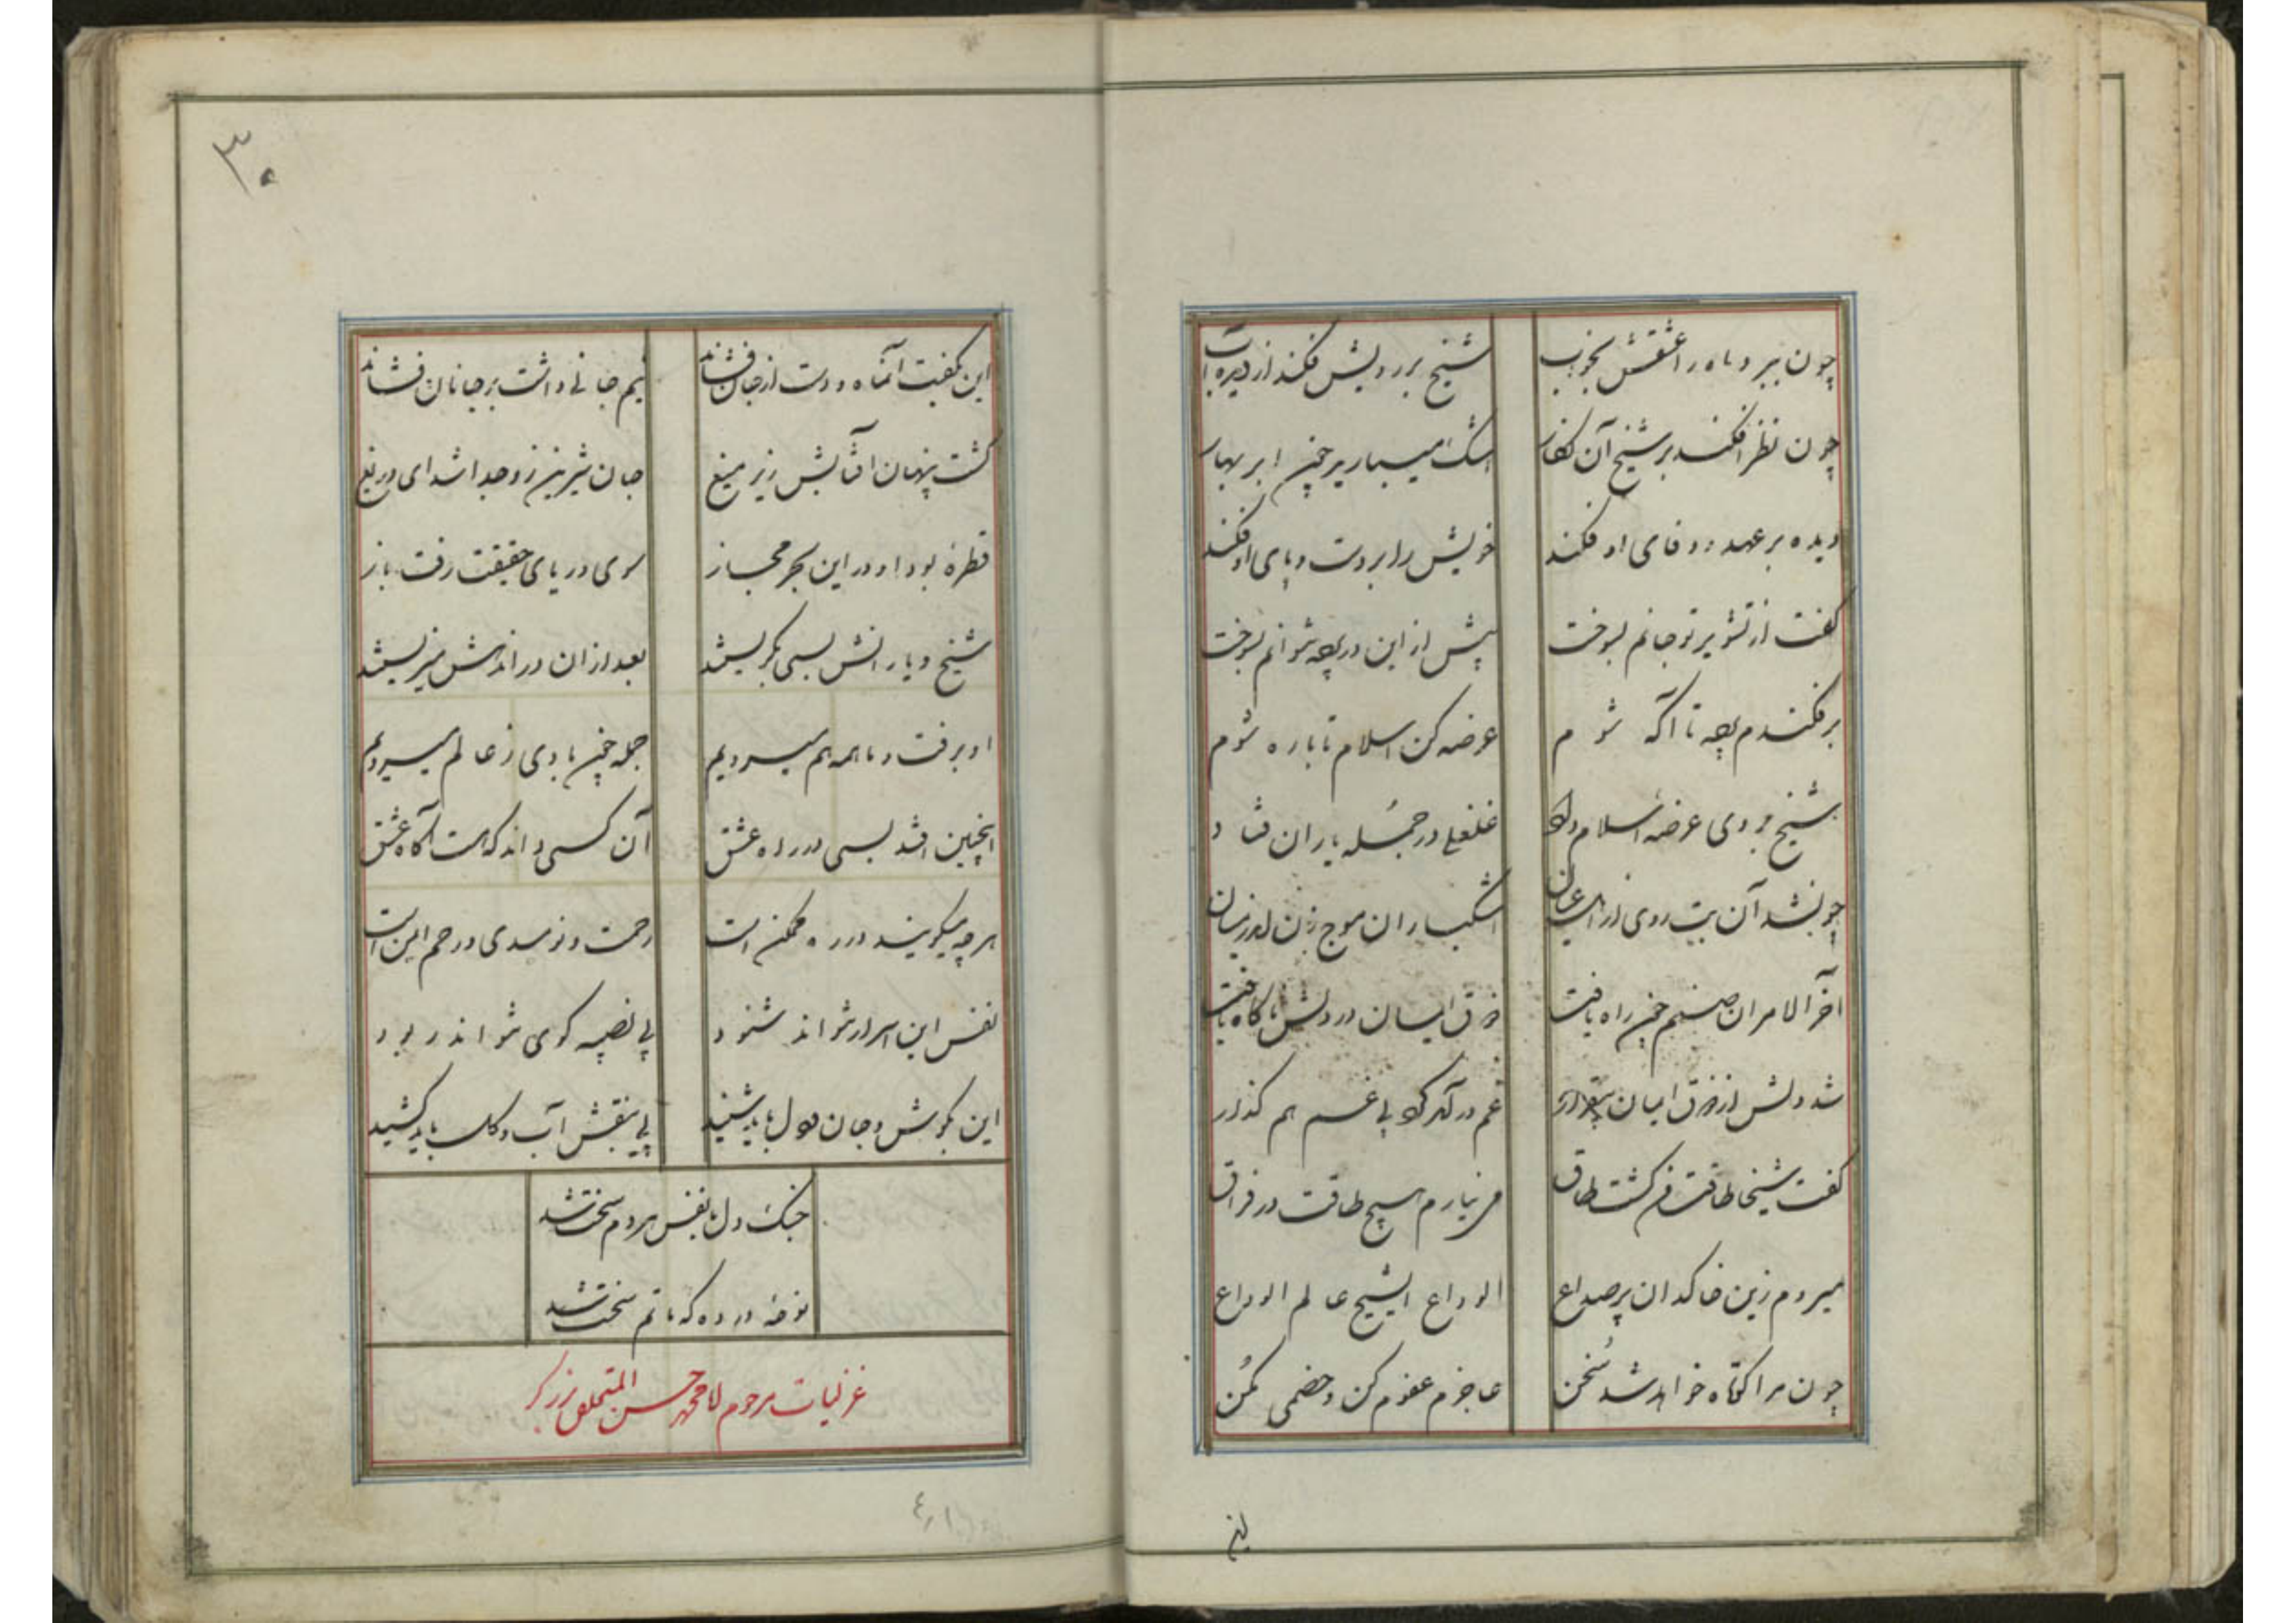 چون ببرد ماه را عشقش بخواب شیخ بر رویش فکند از دیده آب
چون نظر افکند بر شیخ آن نگار اشک میبارید چون ابر بهار
دیده بر عهد و وفای او فکند خویش را بر دست و پای او فکند
گفت از تشویر تو جانم بسوخت بیش از این در پرده نتوانم بسوخت
برفکندم پرده تا آگه شوم عرضه کن اسلام تا با ره شوم
شیخ بر وی عرضه اسلام داد غلغلی در جمله یاران فتاد
چون شد آن بت روی از اهل عیان اشکباران موج زن شد در میان
آخر الامر ان صنم چون راه یافت ذوق ایمان در دلش ناگاه یافت
شد دلش از ذوق ایمان بیقرار غم درآمد گرد او بی غمگسار
گفت شیخا طاقت من گشت طاق من نیارم هیچ طاقت در فراق
میروم زین خاکدان پر صداع الوداع ایشیخ عالم الوداع
چون مرا کوتاه خواهد شد سخن عاجزم عفوم کن و خصمی مکن
این
۳۰
این بگفت آنماه و دست از جان فشاند نیم جانی داشت بر جانان فشاند
گشت پنهان افتابش زیر میغ جان شیرین زو جدا شد ای دریغ
قطره بود او در این بحر مجاز سوی دریای حقیقت رفت باز
شیخ و یارانش بسی بگریستند بعد از ان در اندهش میزیستند
او برفت و ما همه هم میرویم جمله چون بادی ز عالم میرویم
اینچنین افتد بسی در راه عشق آن کسی داند که هست آگاه عشق
هر چه میگویند در ره ممکن است رحمت و نومیدی و مکر ایمن است
نفس این اسرار نتواند شنود بی نصیبه گوی نتواند ربود
این بگوش و جان و دل باید شنید نی بنقش آب و گل باید کشید
جنگ دل با نفس هر دم سخت شد
نوحه در ده که ماتم سخت شد
غزلیات مرحوم ملا محمد حسن المتخلص بزرگر